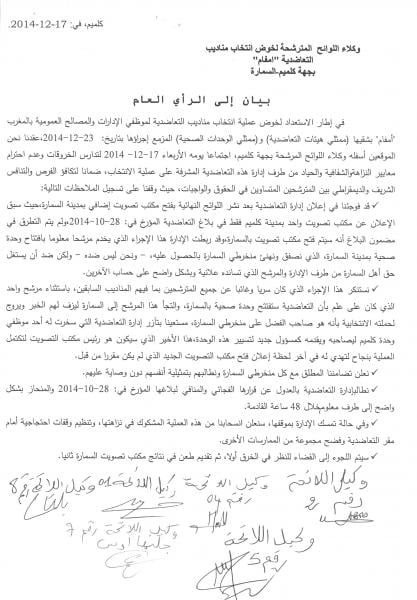 كلميم، في: 17-12-2014.
وكلاء اللوائح المترشحة لخوض انتخاب مناديب
التعاضدية "امفام"
بجهة كلميم-السمارة
بيان إلى الرأي العام
في إطار الاستعداد لخوض عملية انتخاب مناديب التعاضدية لموظفي الإدارات والمصالح العمومية بالمغرب
"أمفام" بشقيها (ممثلي هيئات التعاضدية) و(ممثلي الوحدات الصحية) المزمع إجراؤها بتاريخ: 23-12-2014،عقدنا نحن
الموقعين أسفله وكلاء اللوائح المترشحة بجهة كلميم، اجتماعا يومه الأربعاء 17-12-2014 لتدارس الخروقات وعدم احترام
معايير النزاهةوالشفافية والحياد من طرف إدارة هذه التعاضدية المشرفة على عملية الانتخاب، ضمانا لتكافؤ الفرص والتنافس
الشريف والديمقراطي بين المترشحين المتساوين في الحقوق والواجبات، حيث وقفنا على تسجيل الملاحظات التالية:
✓ فوجئنا في إعلان إدارة التعاضدية بعد نشر اللوائح النهائية بفتح مكتب تصويت إضافي بمدينة السمارة،حيث سبق
الإعلان عن مكتب تصويت واحد بمدينة كلميم فقط في بلاغ التعاضدية المؤرخ في: 28-10-2014،ولم يتم التطرق في
مضمون البلاغ أنه سيتم فتح مكتب تصويت بالسمارة،وقد ربطت الإدارة هذا الإجراء الذي يخدم مرشحا معلوما بافتتاح وحدة
صحية بمدينة السمارة، الذي نصفق ونهنئ منخرطي السمارة بالحصول عليه، – ونحن ليس ضده – ولكن ضد أن يستغل
حق أهل السمارة من طرف الإدارة والمرشح الذي تسانده علانية وبشكل واضح على حساب الآخرين.
✓ نستنكر هذا الإجراء الذي كان سريا وغائبا عن جميع المترشحين بما فيهم المناديب السابقين، باستثناء مرشح واحد
الذي كان على علم بأن التعاضدية ستفتتح وحدة صحية بالسمارة، والتجأ هذا المرشح إلى السمارة ليزف لهم الخبر ويروج
لحملته الانتخابية بأنه هو صاحب الفضل على منخرطي السمارة، مستعينا بتآزر إدارة التعاضدية التي سخرت له أحد موظفي
وحدة كلميم ليصاحبه ويقدمه كمسؤول جديد لتسيير هذه الوحدة،هذا الأخير الذي سيكون هو رئيس مكتب التصويت لتكتمل
العملية بنجاح لتهدي له في آخر لحظة إعلان فتح مكتب التصويت الجديد الذي لم يكن مقررا من قبل.
✓ نعلن تضامننا المطلق مع كل منخرطي السمارة ونطالبهم بتمثيلية أنفسهم دون وصاية عليهم.
✓ نطالبإدارة التعاضدية بالعدول عن قرارها الفجائي والمنافي لبلاغها المؤرخ في: 28-10-2014 والمنحاز بشكل
واضح إلى طرف معلوم،خلال 48 ساعة القادمة.
✓ وفي حالة تمسك الإدارة بموقفها، سنعلن انسحابنا من هذه العملية المشكوك في نزاهتها، وتنظيم وقفات احتجاجية أمام
مقر التعاضدية وفضح مجموعة من الممارسات الأخرى.
✓ سيتم اللجوء إلى القضاء للنظر في الخرق أولا، ثم تقديم طعن في نتائج مكتب تصويت السمارة ثانيا.
وكيل اللائحة
رقم 2
وكيل اللائحة
رقم 04
وكيل اللائحة 01
وكيل اللائحة رقم 8
وكيل اللائحة رقم 7
وكيل اللائحة
رقم 5